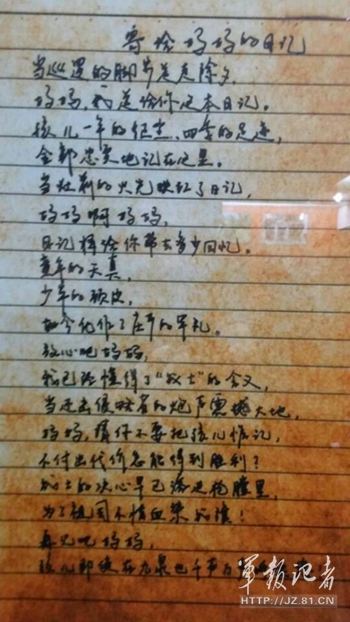 寄给妈妈的日记
当巡逻的脚步走走除夕，
妈妈，我送给你这本日记。
孩儿一年的征尘，四季的足迹，
全部忠实地记在这里。
当灶前的火光映红了日记，
妈妈啊妈妈，
日记将给你带去多少回忆。
童年的天真，
少年的顽皮，
如今化作了庄严的军礼。
放心吧妈妈，
我已经懂得了“战士”的含义，
当还击侵略者的炮声震撼大地，
妈妈，请你不要把孩儿惦记，
不付出代价怎能得到胜利？
战士的决心早已落进枪膛里，
为了祖国不惜血染的
再见吧妈妈，
孩儿即使在九泉也
軍報记者
HTTP://JZ.81.CN